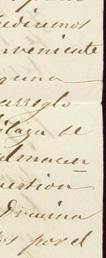 ediremos
nveniente
guna
arreglo
plaza de
almacen
uestion
Oficina
os por el